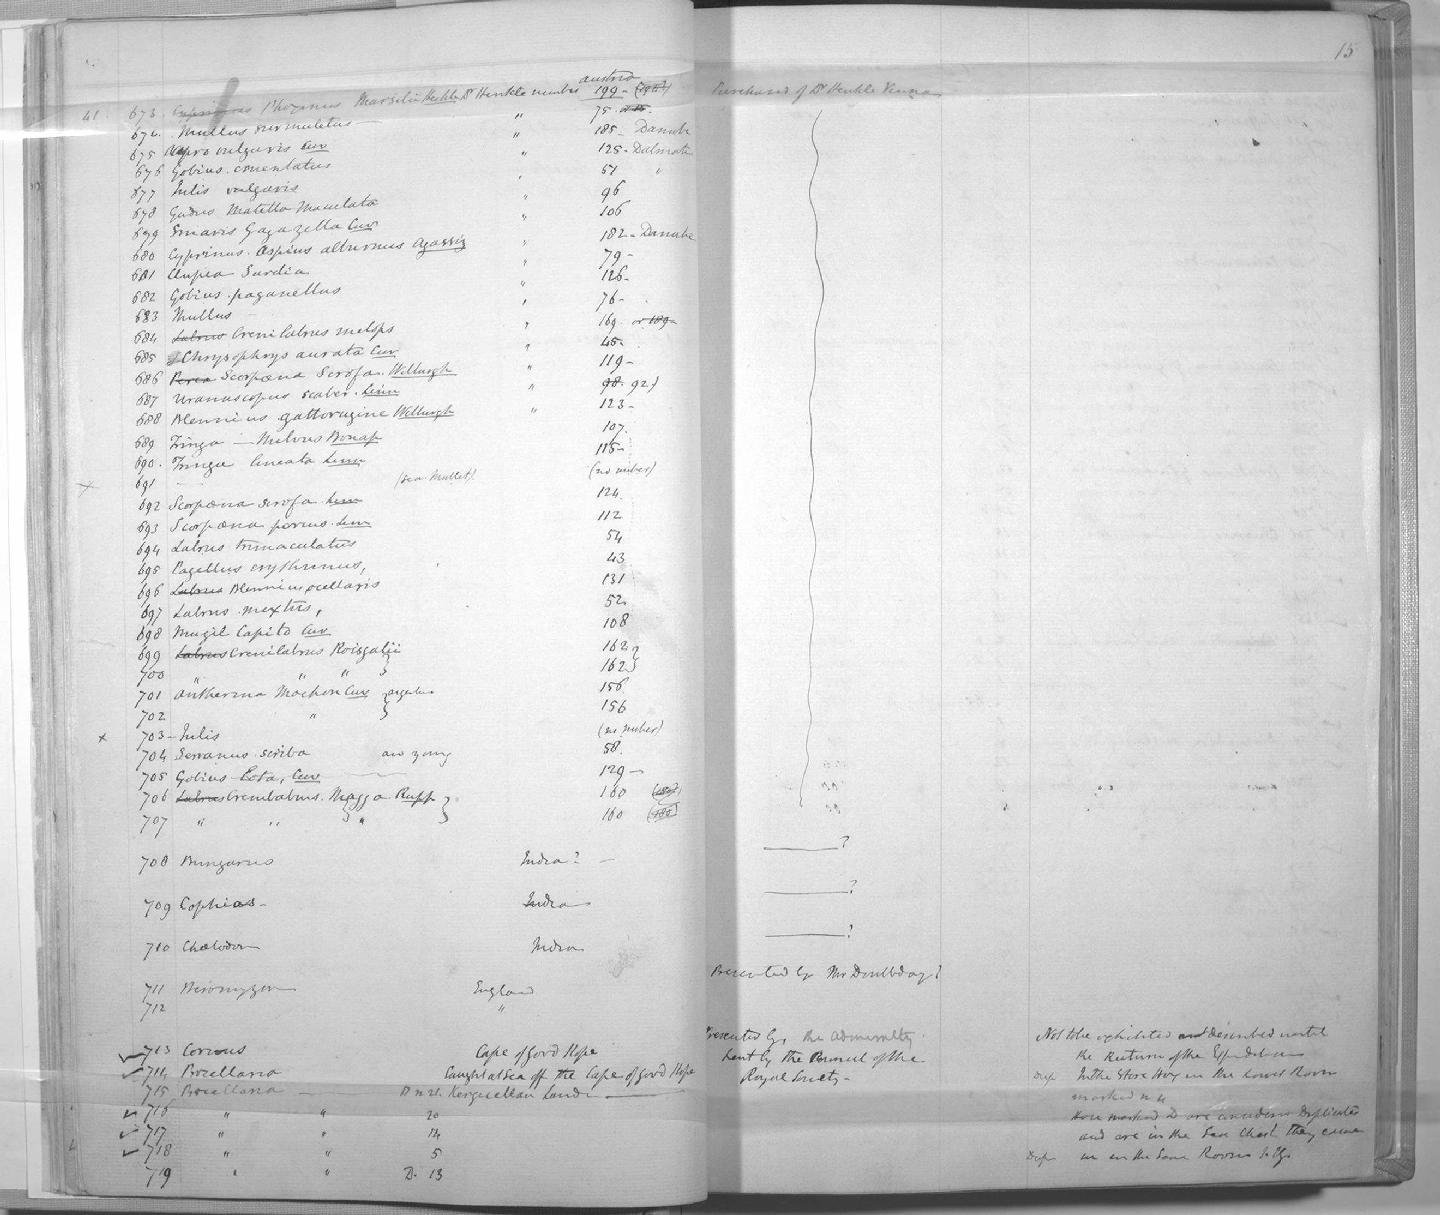 15
Austria
41 673 Cyprinus Phoxinus Marsilii Heckle Dr Henkle number 199 - (196) Purchased of Dr Henkle Vienna
674 Mullus surmuletus " 75.
675 Apro vulgaris Cuv 185 - Danube
676 Gobius cruentatus " 125 - Dalmati
677 Julis vulgaris " 51 "
678 Gadus Motella Maculata " 96
679 Smaris Gagazella Cuv " 106
680 Cyprinus Aspius alburnus Agassiz " 182 - Danube
681 Clupea Sardia " 79 -
682 Gobius paganellus " 126 -
683 Mullus " 76 -
684 Labrus Crenilabrus melops " 169 or 189 -
685 Chrysophrys aurata Cuv " 45 -
686 Perca Scorpæna Scrofa Willurgh " 119 -
687 Uranuscopus scaber Linn " 98 92)
688 Blennius gattorugine Willurgh " 123 -
689 Tringa - Milvus Bonap 107
690 Tringa lineata Linn 115 -
691 (sea Mullet) (no number)
692 Scorpæna scrofa Linn 124
693 Scorpæna porcus Linn 112
694 Labrus trimaculatus 54
695 Pagellus erythrinus, 43
696 Labrus Blennius ocellaris 131
697 Labrus mextus, 52
698 Mugil Capito Cuv 108
699 Labrus Crenilabrus Roissalii 162
700 " " " 162
701 Antherina Mochon Cuv 156
702 " 156
703 - Julis (no number)
704 Serranus scriba 58
705 Gobius Lota, Cuv 129 -
706 Labrus Crenilabrus Massa Rupp 160
707 " " " 160 (180)
708 Bungarus India? - ?
709 Cophias - India ?
710 Chælodon India ?
Presented by Mr Doubleday?
711 Petromyzon England
712 "
Presented by the Admiralty Not to be exhibited and described until
713 Corvus Cape of Good Hope Lent by the Council of the the Return of the Expedition
714 Procellaria Caught at Sea off the Cape of Good Hope Royal Society - Dup In the Store Hog in the Lower Room
715 Procellaria D n 21. Kerguellan Land marked n 4
716 " " 20 those marked D are considered Duplicates
717 " " 14 and are in the Sea Chest they came
718 " " 5 Dup in in the Same Room
719 " " D. 13